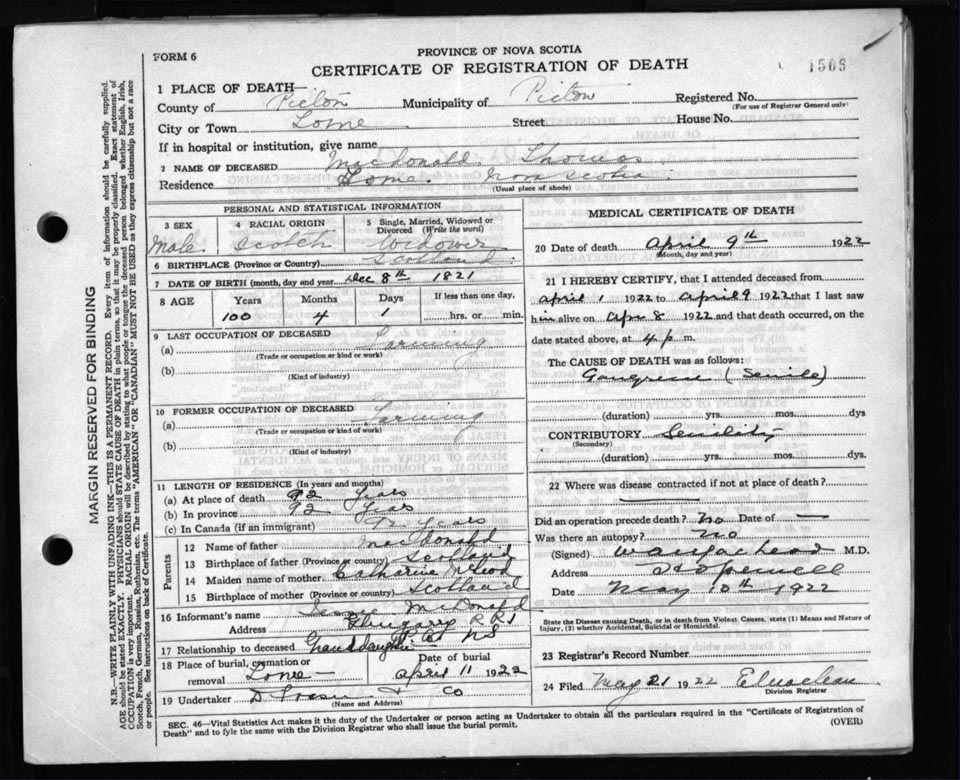 FORM 6
PROVINCE OF NOVA SCOTIA
CERTIFICATE OF REGISTRATION OF DEATH
1 PLACE OF DEATH—
County of Pictou Municipality of Pictou Registered No.
(For use of Registrar General only)
City or Town Lorne Street House No.
If in hospital or institution, give name
2 NAME OF DECEASED MacDonald Thomas
Residence Lorne Nova Scotia
(Usual place of abode)
PERSONAL AND STATISTICAL INFORMATION
3 SEX Male
4 RACIAL ORIGIN Scotch
5 Single, Married, Widowed or Divorced (Write the word) Widower
6 BIRTHPLACE (Province or Country) Scotland
7 DATE OF BIRTH (month, day and year) Dec 8th 1821
8 AGE Years Months Days If less than one day,
100 4 1 hrs. or min.
9 LAST OCCUPATION OF DECEASED
(a) Farming
(Trade or occupation or kind or work)
(b)
(Kind of industry)
10 FORMER OCCUPATION OF DECEASED
(a) Farming
(Trade or occupation or kind of work)
(b)
(Kind of industry)
11 LENGTH OF RESIDENCE (In years and months)
(a) At place of death 92 years
(b) In province 92 years
(c) In Canada (if an immigrant) 92 years
Parents
12 Name of father MacDonald
13 Birthplace of father (Province or country) Scotland
14 Maiden name of mother Catharine McLeod
15 Birthplace of mother (Province or country) Scotland
16 Informant's name McDonald
Address Glengarry R R 1
17 Relationship to deceased Granddaughter Pict NS
18 Place of burial, cremation or removal Lorne
Date of burial April 11 1922
19 Undertaker D Fraser & Co
(Name and Address)
MEDICAL CERTIFICATE OF DEATH
20 Date of death April 9th 1922
(Month, day and year)
21 I HEREBY CERTIFY, that I attended deceased from
April 1 1922 to April 9 1922 that I last saw
him alive on Apr 8 1922 and that death occurred, on
date stated above, at 4 p m.
The CAUSE OF DEATH was as follows:
Gangrene (Senile)
(duration) yrs. mos. dys
CONTRIBUTORY Senility
(Secondary)
(duration) yrs. mos. dys.
22 Where was disease contracted if not at place of death?
Did an operation precede death? No Date of —
Was there an autopsy? No
(Signed) M.D.
Address Hopewell
Date May 10th 1922
State the Disease causing Death, or in death from Violent Causes, state (1) Means and Nature of Injury, (2) whether Accidental, Suicidal or Homicidal.
23 Registrar's Record Number
24 Filed May 21 1922
Division Registrar
SEC. 46—Vital Statistics Act makes it the duty of the Undertaker or person acting as Undertaker to obtain all the particulars required in the "Certificate of Registration of
Death" and to fyle the same with the Division Registrar who shall issue the burial permit.
(OVER)
MARGIN RESERVED FOR BINDING
N.B.—WRITE PLAINLY WITH UNFADING INK—THIS IS A PERMANENT RECORD. Every item of information should be carefully supplied.
AGE should be stated EXACTLY. PHYSICIANS should STATE CAUSE OF DEATH in plain terms, so that it may be properly classified. Exact statement of
OCCUPATION is very important. RACIAL ORIGIN will be described by stating to what people or tongue the deceased person belonged whether English, Irish,
Scotch, French, German, Russian, Ruthenian, etc. The terms "AMERICAN" OR "CANADIAN" MUST NOT BE USED as they express citizenship but not a race
or people. See instructions on back of Certificate.